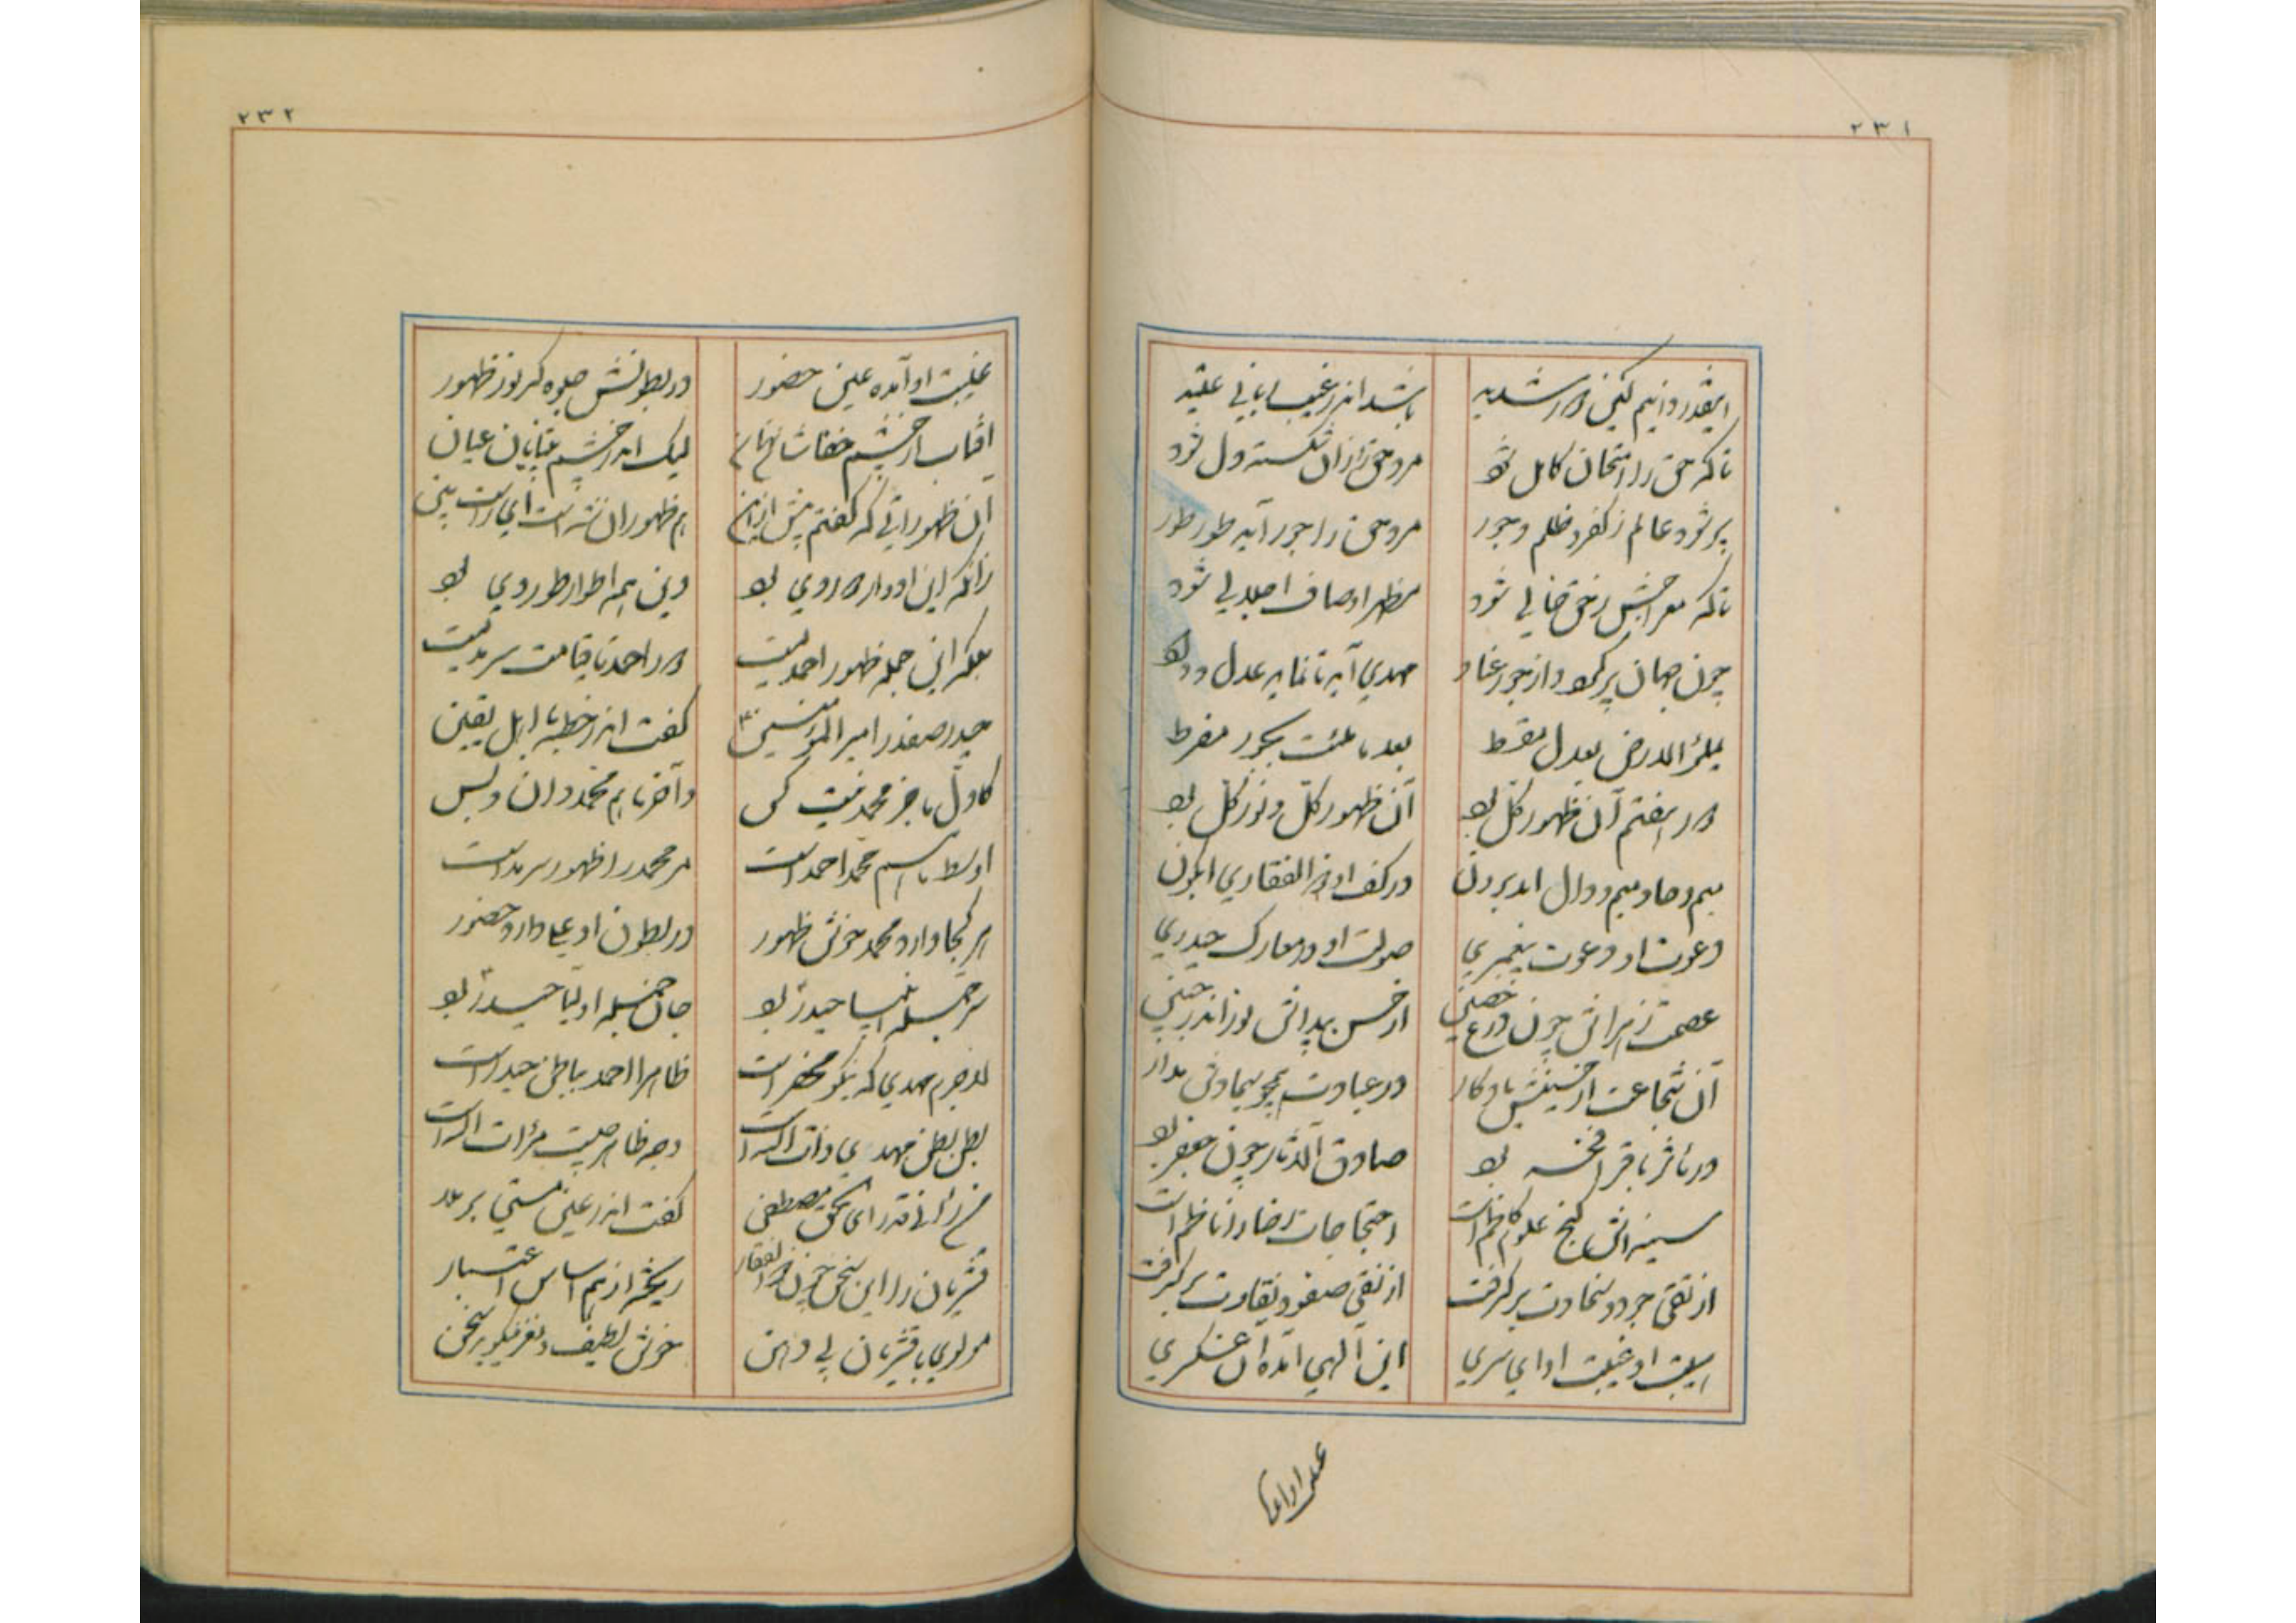 ۲۳۱
اینقدر دانیم کین دور شدید باشد اندر غیب یابانی عقید
تا که حق را امتحان کامل شود مرد حق زان شکسته دل شود
پر شود عالم ز کفر و ظلم و جور مرد حق را جور آید طور طور
تا که معراجش ز حق خالی شود مظهر اوصاف اجلالی شود
چون جهان پر گردد از جور و عناد مهدی آید تا نماید عدل و داد
یملؤ الارض بعدل مقسط بعد ما ملئت بجور مفرط
دور هفتم آن ظهور کل بود آن ظهور کل و نور کل بود
میم و حا و میم و دال آید برون در کف او ذو الفقاری آبگون
دعوت او دعوت پیغمبری صولت او در معارک حیدری
عصمت زهراش چون درع حصین از حسن پیداش نور اندر جبین
آن شجاعت از حسینش یادگار در عبادت همچو سجادش مدار
در مآثر باقر افخر بود صادق الآثار چون جعفر بود
سینه اش گنج علوم کاظم است احتجاجات رضا را ناظم است
از تقی جود و سخاوت برگرفت از نقی صفو و نقاوت برگرفت
هیبت او غیبت او ای سری این الهی آمده آن عسکری
۲۳۲
غیبت او آمده عین حضور در بطونش جلوه گر نور ظهور
آفتاب از چشم خفاشان نهان لیک اندر چشم بینایان عیان
آن ظهوراتی که گفتم پیش ازین هم ظهور آن شه است ای راست بین
زانکه این ادوار دور وی بود وین همه اطوار طور وی بود
بلکه این جمله ظهور احمدیست دور احمد تا قیامت سرمدیست
حیدر صفدر امیر المؤمنین گفت اندر خطبه با اهل یقین
کاول ما جز محمد نیست کس و آخر ما هم محمد دان و بس
اوسط ما هم محمد احمد است مر محمد را ظهور سرمد است
هر کجا دارد محمد خوش ظهور در بطون او علی دارد حضور
سر جمله انبیا حیدر بود جان جمله اولیا حیدر بود
لاجرم مهدی که نیکو محضر است ظاهرا احمد بباطن حیدر است
بطن بطن مهدی ذات اکبر است وجه ظاهر چیست مرآت اکبر است
گفت اندر عین مستی برملا
قشریان را این سخن چون ذو الفقار ریخته از هم اساس اعتبار
مولوی با قشریان بی دهن خوش لطیف و نغز نیکو بر سخن